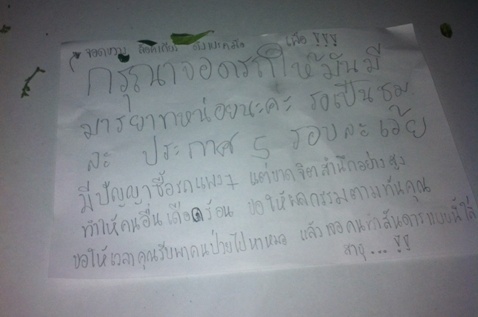 (จอดขวาง ล็อคเกียร์ ดึงเบรคมือ) เพื่อ !!!
กรุณาจอดรถให้มันมี
มารยาทหน่อยนะคะ รอเป็นชม
ละ ประกาศ 5 รอบละเว้ย
มีปัญญาซื้อรถแพงๆ แต่ขาดจิตสำนึกอย่างสูง
ทำให้คนอื่นเดือดร้อน ขอให้ผลกรรมตามทันคุณ
ขอให้เวลาคุณรีบพาคนป่วยไปหาหมอ แล้วเจอคนทำสันดารแบบนี้ใส่
สาธุ ... !!